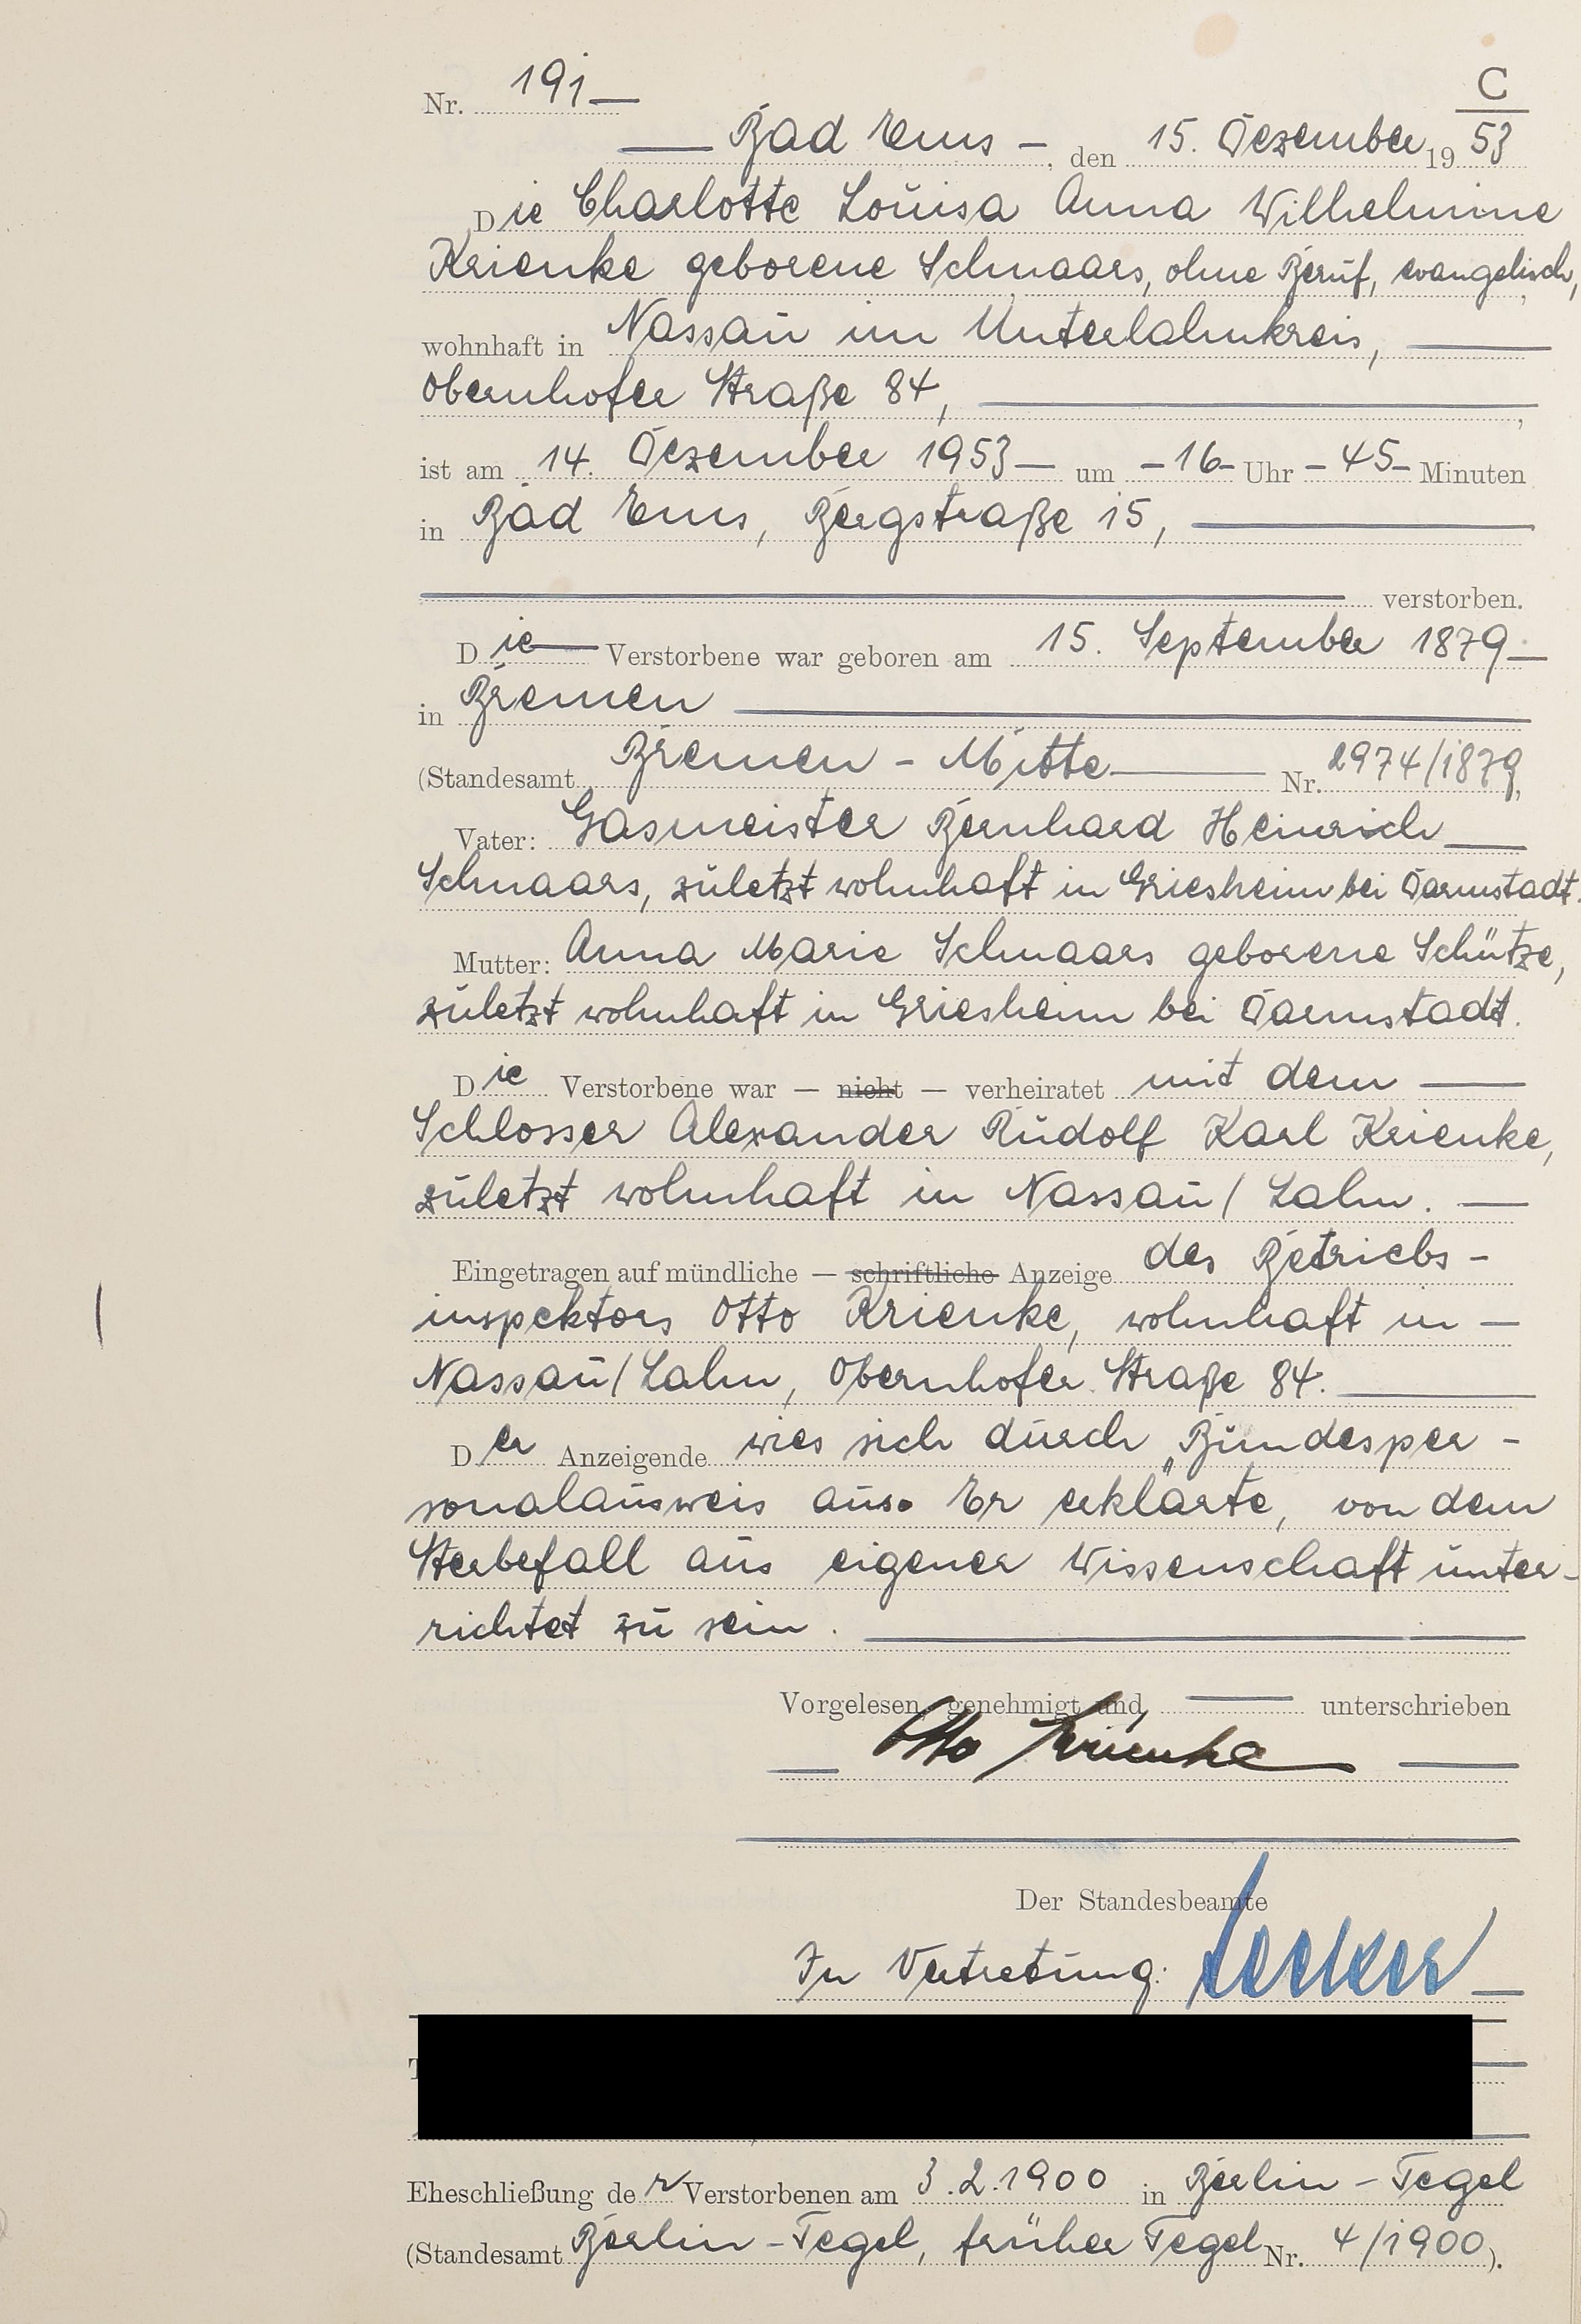 C
Nr. 191
Bad Ems, den 15. Dezember 19 53
Die Charlotte Louisa Anna Wilhelmine
Krienke geborene Schnaars, ohne Beruf, evangelisch,
wohnhaft in Nassau im Unterlahnkreis,
Obernhofer Straße 84,
ist am 14. Dezember 1953 um -16- Uhr -45- Minuten
in Bad Ems, Bergstraße 15,
verstorben.
Die Verstorbene war geboren am 15. September 1879
in Bremen
(Standesamt Bremen - Mitte Nr. 2974/1879,
Vater: Gasmeister Bernhard Heinrich
Schnaars, zuletzt wohnhaft in Griesheim bei Darmstadt.
Mutter: Anna Marie Schnaars geborene Schütze,
zuletzt wohnhaft in Griesheim bei Darmstadt.
Die Verstorbene war — nicht — verheiratet mit dem
Schlosser Alexander Rudolf Karl Krienke,
zuletzt wohnhaft in Nassau/Lahn.
Eingetragen auf mündliche — schriftliche Anzeige des Betriebs-
inspektors Otto Krienke, wohnhaft in
Nassau/Lahn, Obernhofer Straße 84.
Der Anzeigende wies sich durch „Bundesper-
sonalausweis aus. Er erklärte, von dem
Sterbefall aus eigener Wissenschaft unter-
richtet zu sein.
Vorgelesen, genehmigt und unterschrieben
Otto Krienke
Der Standesbeamte
In Vertretung:
Eheschließung der Verstorbenen am 3.2.1900 in Berlin - Tegel
(Standesamt Berlin - Tegel, früher Tegel Nr. 4/1900).